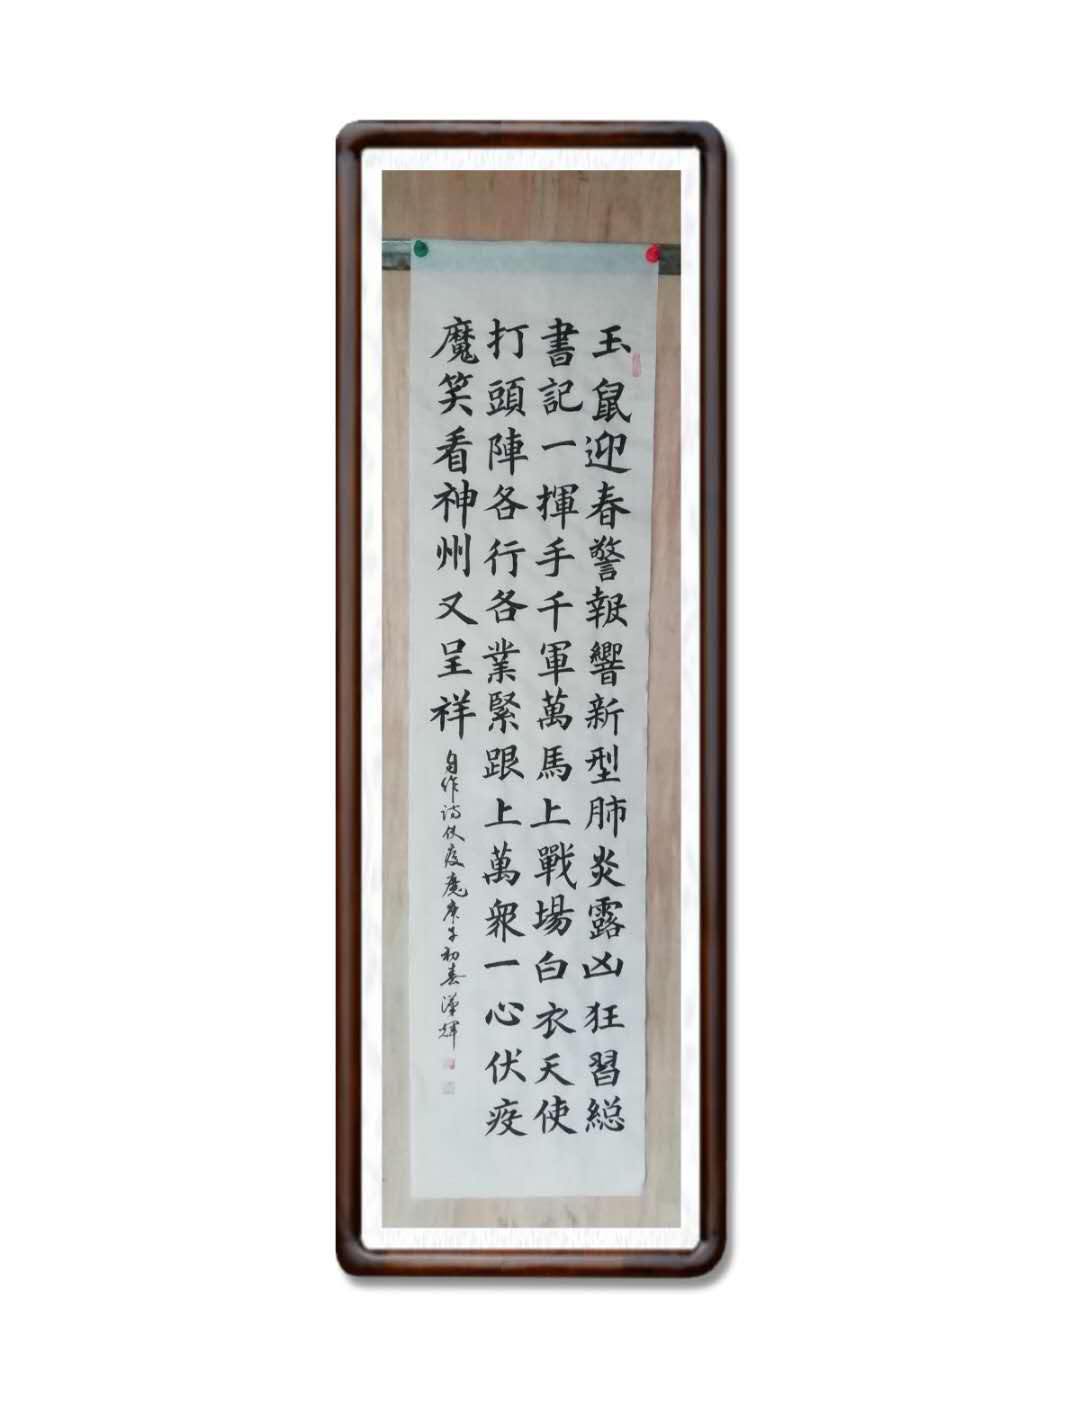 玉鼠迎春警報響新型肺炎露凶狂習総
書記一揮手千軍萬馬上戰場白衣天使
打頭陣各行各業緊跟上萬衆一心伏疫
魔笑看神州又呈祥
自作詩伏疫魔庚子初春漢輝